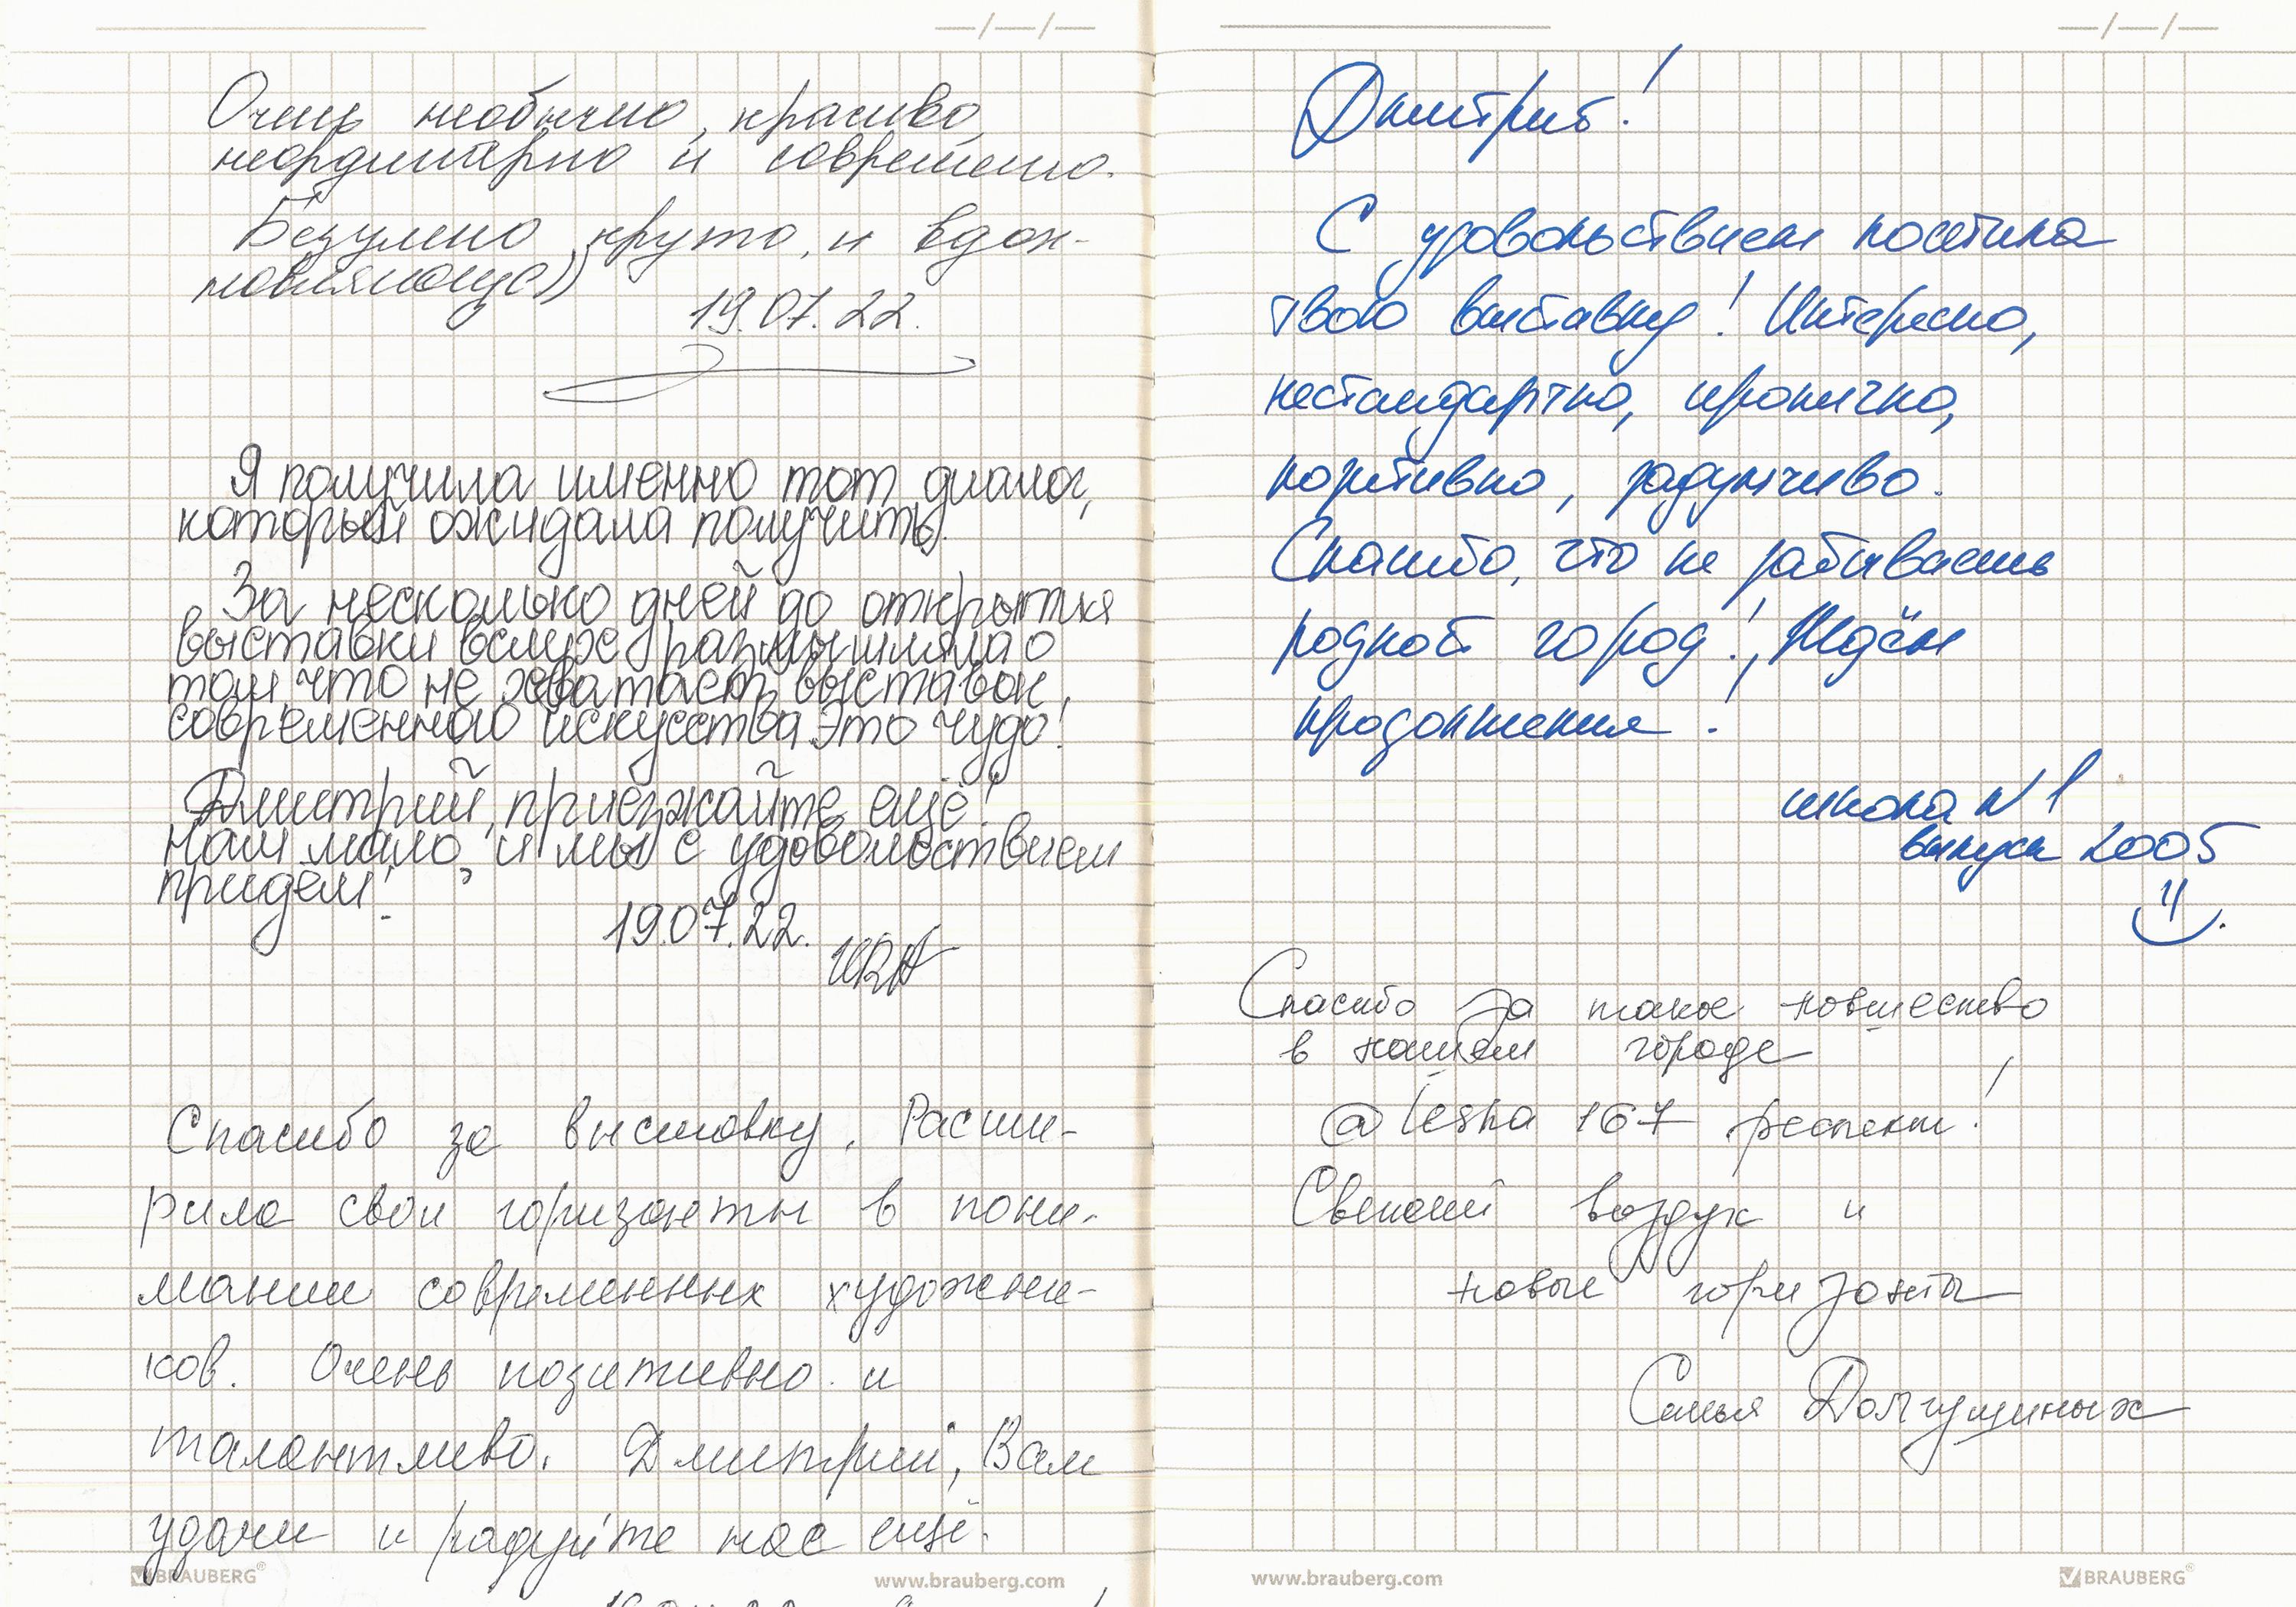 Очень необычно, красиво,
неординарно и современно.
Безумно круто, и вдох-
новляюще))
19.07.22.
Я получила именно тот диалог,
который ожидала получить.
За несколько дней до открытия
выставки вслух размышляла о
том, что не хватает выставок
современного искусства. Это чудо!
Дмитрий, приезжайте ещё!
Нам мало, и мы с удовольствием
придём!
19.07.22.
Спасибо за выставку. Расши-
рила свои горизонты в пони-
мании современных художни-
ков. Очень позитивно и
талантливо. Дмитрий, Вам
удачи и радуйте нас ещё.
BRAUBERG®
www.brauberg.com
Дмитрий!
С удовольствием посетила
твою выставку! Интересно,
нестандартно, иронично,
позитивно, задумчиво.
Спасибо, что не забываешь
родной город! Ждём
продолжения!
школа №1
выпуск 2005
Спасибо за такое новшество
в нашем городе
@lesha 167 респект!
Свежий воздух и
новые горизонты
Семья Долгушиных
www.brauberg.com
BRAUBERG®